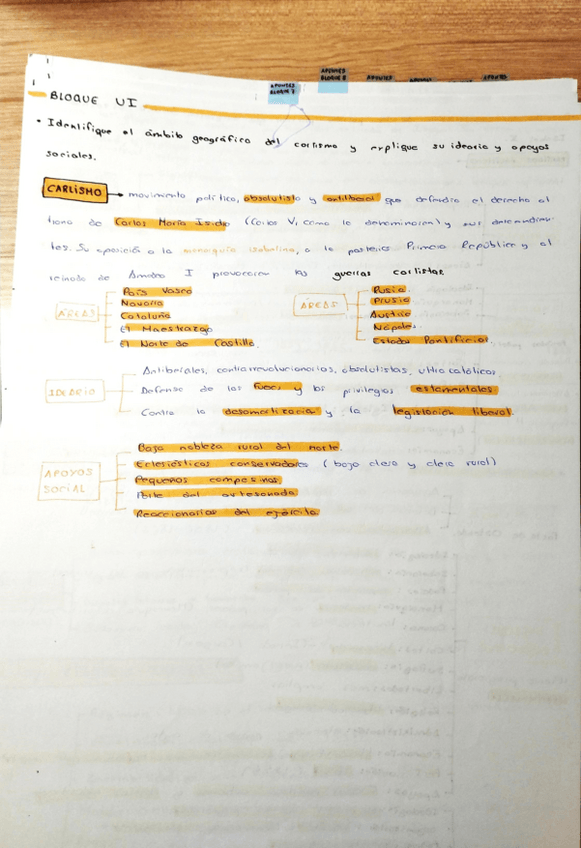 APUNTES BLOQUE 7
APUNTES BLOQUE 8
APUNTES
APUNTES
BLOQUE VI
• Identifique el ámbito geográfico del carlismo y explique su ideario y apoyos
sociales.
CARLISMO → movimiento político, absolutista y antiliberal que defendía el derecho al
trono de Carlos María Isidro (Carlos V, como lo denominaron) y sus descendien-
tes. Su oposición a la monarquía isabelina, a la posterior Primera República y al
reinado de Amadeo I provocaron las guerras carlistas.
ÁREAS
País Vasco
Navarra
Cataluña
El Maestrazgo
El Norte de Castilla.
ÁREAS
Rusia
Prusia
Austria
Nápoles
Estados Pontificios.
IDEARIO
Antiberales, contrarrevolucionarios, absolutistas, ultra católicos.
Defensa de los fueros y los privilegios estamentales
Contra la desamortización y la legislación liberal.
APOYOS SOCIAL
Baja nobleza rural del norte.
Eclesiásticos conservadores (bajo clero y clero rural)
Pequeños campesinos
Parte del artesonado
Reaccionarios del ejército.